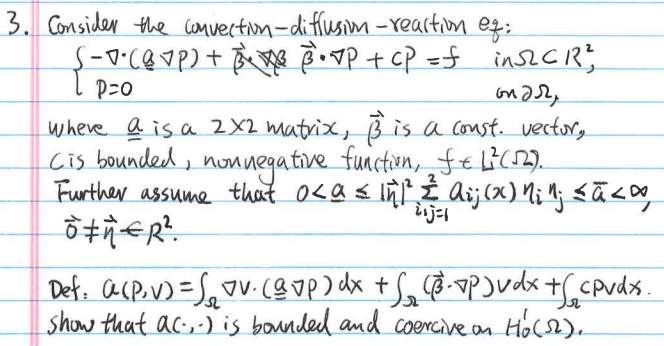 3. Consider the convection-diffusion-reaction eq:
{ -∇·(a̲∇p) + β⃗·∇p + cp = f in Ω ⊂ R²,
p=0 on ∂Ω,
where a̲ is a 2×2 matrix, β⃗ is a const. vector,
c is bounded, nonnegative function, f ∈ L²(Ω).
Further assume that 0 < a̲ ≤ |η⃗|² Σ_{i,j=1}^{2} a_{ij}(x) η_i η_j ≤ ā < ∞,
0⃗ ≠ η⃗ ∈ R².
Def: a(p,v) = ∫_Ω ∇v·(a̲∇p) dx + ∫_Ω (β⃗·∇p) v dx + ∫_Ω cpv dx.
show that a(·,·) is bounded and coercive on H₀¹(Ω).